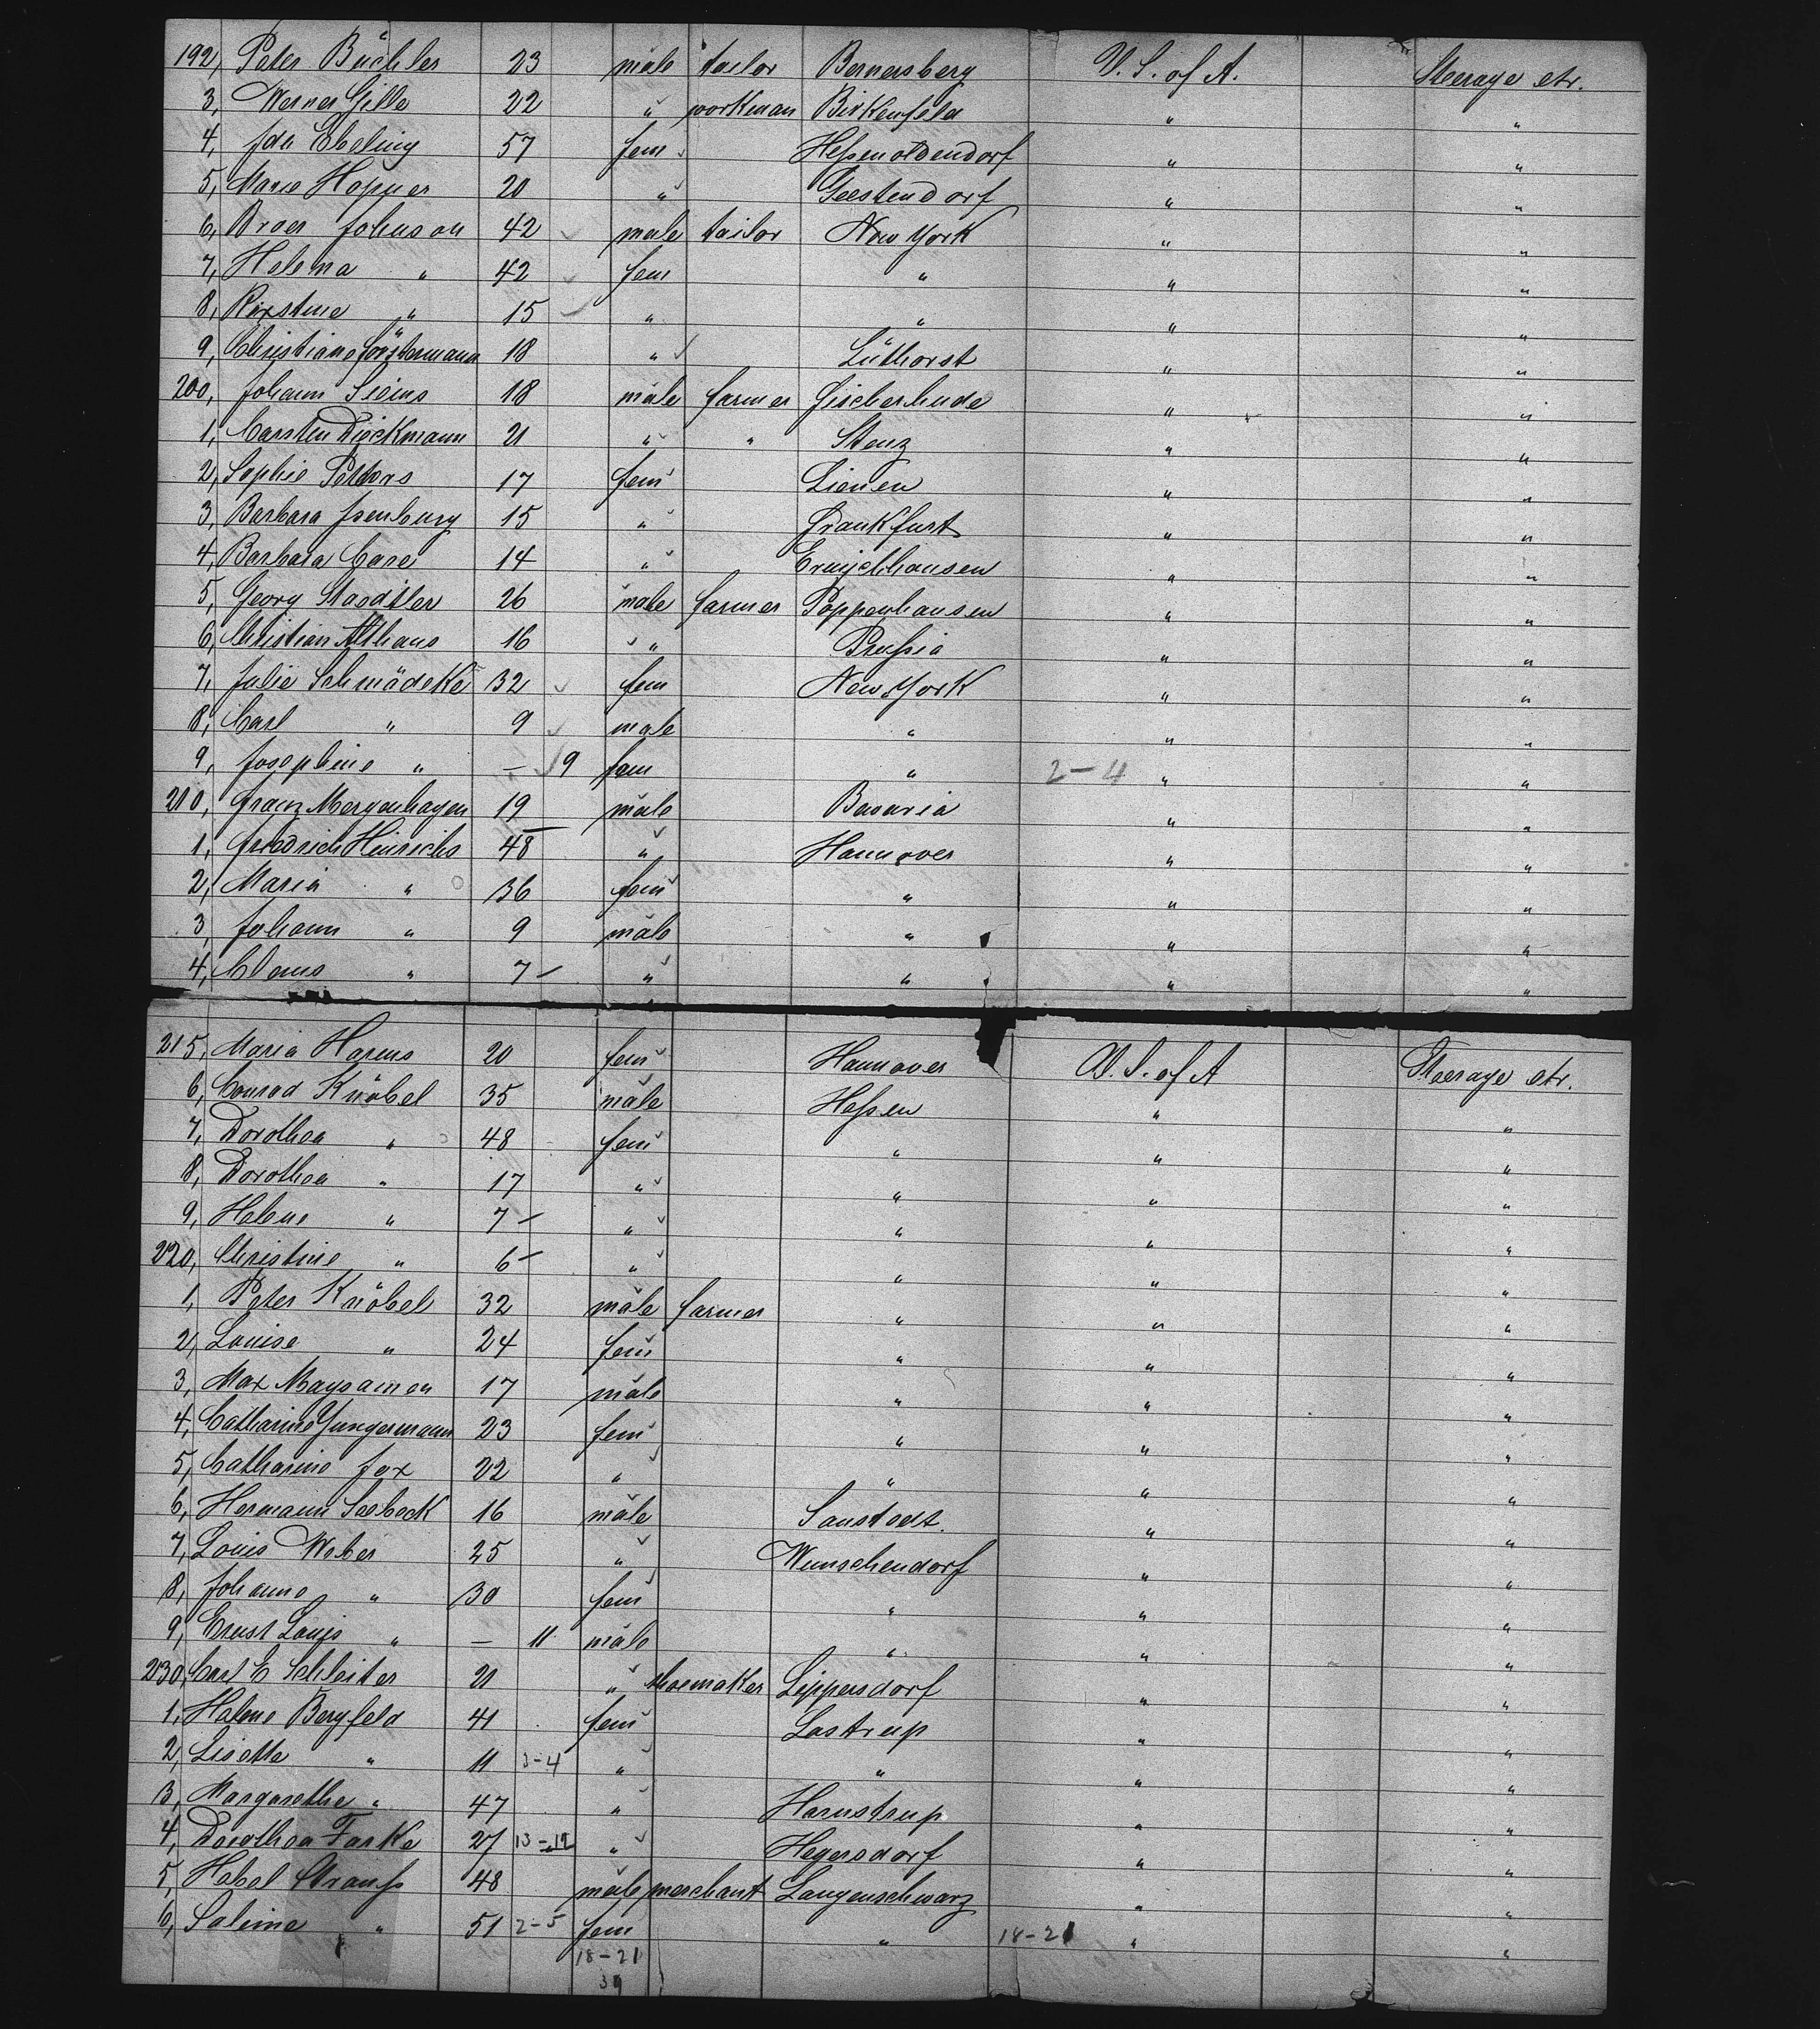 192, Peter Büchler 23 male tailor Bernersberg U. S. of A. Steerage etr.
3, Werner Gille 22 " workman Birkenfeld " "
4, Ida Ebeling 57 fem Heßenoldendorf " "
5, Marie Hopner 20 " Geestendorf " "
6, Broer Johnson 42 male tailor New York " "
7, Helena " 42 fem " " "
8, Kirstine " 15 " " " "
9, Christiane Förstermann 18 " Lüthorst " "
200, Johann Siems 18 male farmer Fischerhude " "
1, Carsten Dieckmann 21 " " Stenz " "
2, Sophie Petters 17 fem Lienen " "
3, Barbara Isenburg 15 " Frankfurt " "
4, Barbara Case 14 " " "
5, Georg Stasdiler 26 male farmer Poppenhausen " "
6, Christian Althaus 16 " Preußia " "
7, Julie Schmädeke 32 fem New York " "
8, Carl " 9 male " " "
9, Josephine " – 9 fem " 2–4 " "
210, Franz Mergenhagen 19 male Bavaria " "
1, Friedrich Hinrichs 48 " Hannover " "
2, Maria " 36 fem " " "
3, Johann " 9 male " " "
4, Claus " 7 – " " " "
215, Maria Harms 20 fem Hannover U. S. of A Steerage etr.
6, Conrad Knöbel 35 male Heßen " "
7, Dorothea " 48 fem " " "
8, Dorothea " 17 " " " "
9, Helene " 7 – " " " "
220, Christine " 6 – " " " "
1, Peter Knöbel 32 male farmer " " "
2, Louise " 24 fem " " "
3, Max Maysamen 17 male " " "
4, Catharine Jungermann 23 fem " " "
5, Catharine Fox 22 " " " "
6, Hermann Seebeck 16 male Sanstedt. " "
7, Louis Weber 25 " Wunschendorf " "
8, Johanne " 30 fem " " "
9, Ernst Louis " – 11 male " " "
230, Carl E Schleiter 21 " shoemaker Lippersdorf " "
1, Helene Bergfeld 41 fem Lastrup " "
2, Lisette " 11 3–4 " " " "
3, Margarethe " 47 " Hamstrup " "
4, Dorothea Farke 27 13–12 " Hegersdorf " "
5, Habel Strauß 48 male merchant Langenschwarz " "
6, Saline " 51 2–5 fem " 18–21 " "
18–21
39